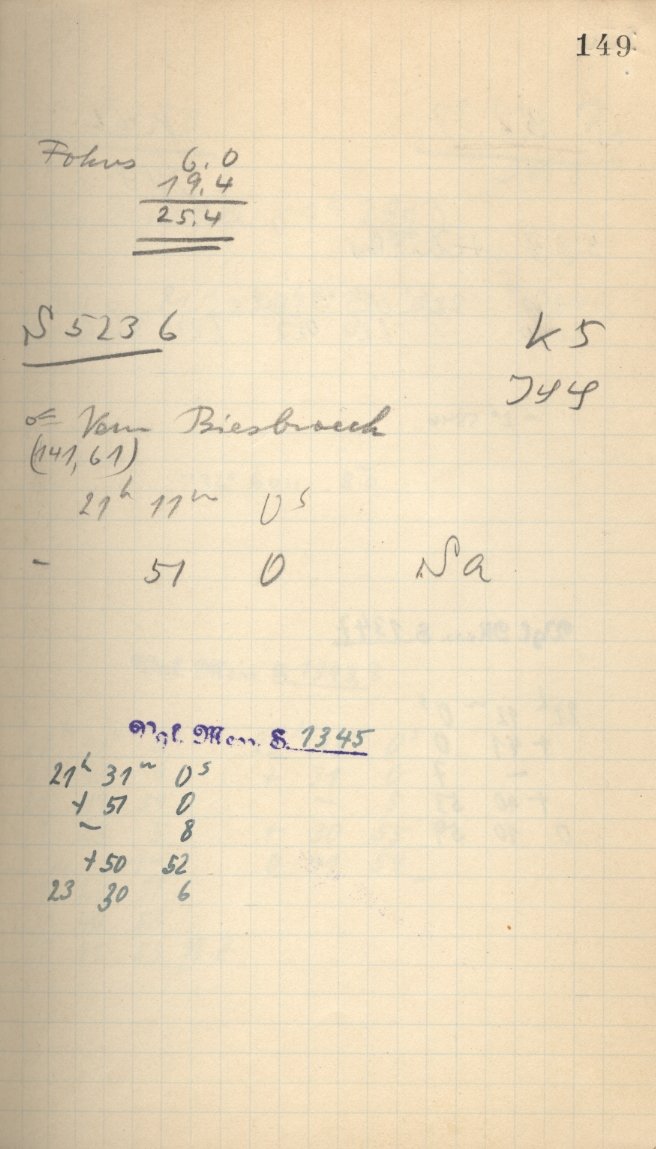 149
Fokus 6.0
19.4
25.4
S 5236
K 5
Van Biesbroeck
(141,61)
21h 11m 0s
- 51 0 Na
Vgl. Men. S. 1345
21h 31m 0s
+ 51 0
- 8
+50 52
23 30 6